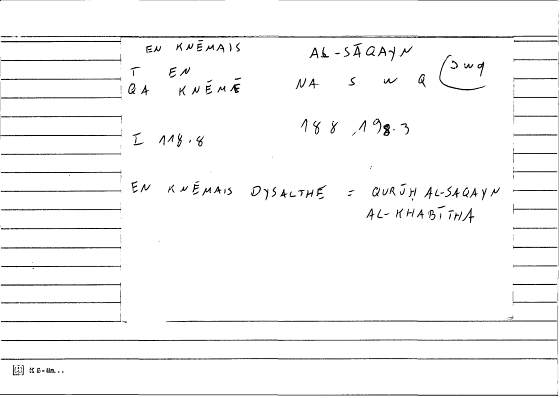 EN KNĒMAIS
AL-SĀQAYN
T EN
QA KNĒMĒ
NA S W Q (swq
188, 198.3
I 118.8
EN KNĒMAIS DYSALTHĒ = QURŪḤ AL-SAQAYN
AL-KHABĪTHA